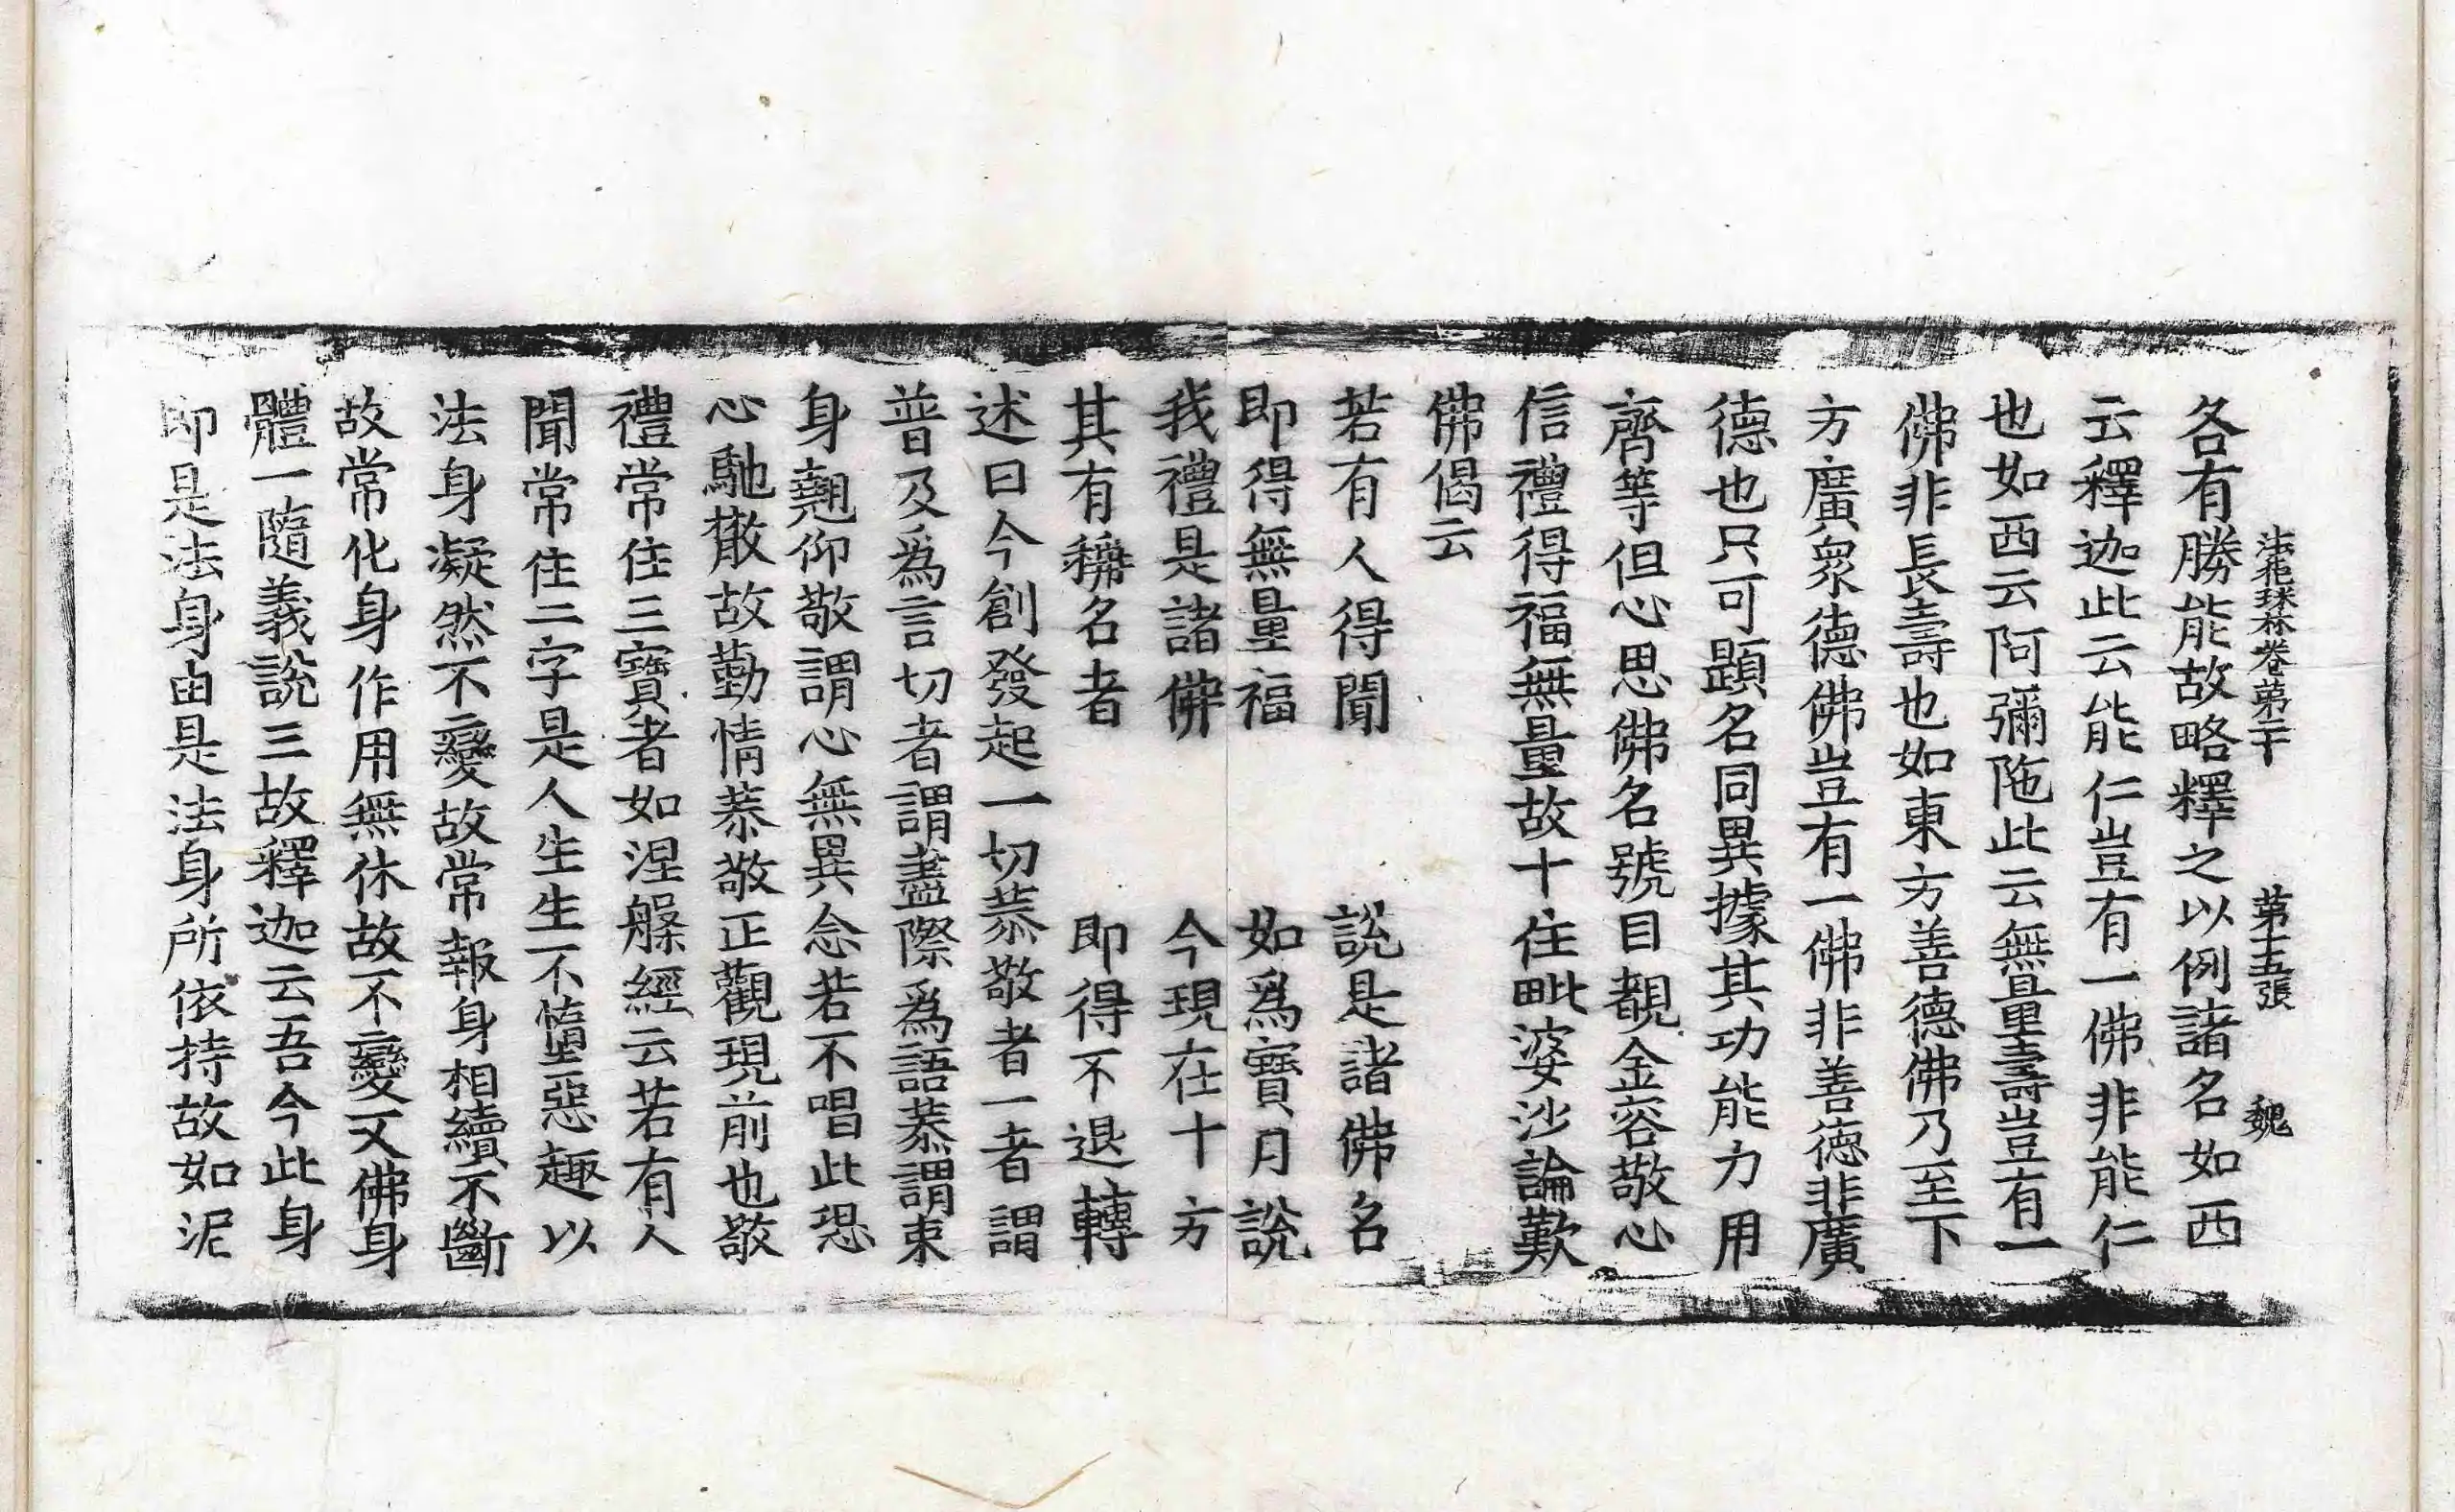 法苑珠林卷第二十 第十五張 魏
各有勝能故略釋之以例諸名如西
云釋迦此云能仁豈有一佛非能仁
也如西云阿彌陁此云無量壽豈有一
佛非長壽也如東方善德佛乃至下
方廣衆德佛豈有一佛非善德非廣
德也只可顯名同異據其功能力用
齊等但心思佛名號目覩金容敬心
信禮得福無量故十住毗婆沙論歎
佛偈云
若有人得聞 說是諸佛名
即得無量福 如爲寶月說
我禮是諸佛 今現在十方
其有稱名者 即得不退轉
述曰今創發起一切恭敬者一者謂
普及爲言切者謂盡際爲語恭謂束
身翹仰敬謂心無異念若不唱此恐
心馳散故勤情恭敬正觀現前也敬
禮常住三寶者如涅槃經云若有人
聞常住二字是人生生不墮惡趣以
法身凝然不變故常報身相續不斷
故常化身作用無休故不變又佛身
體一隨義說三故釋迦云吾今此身
即是法身由是法身所依持故如泥